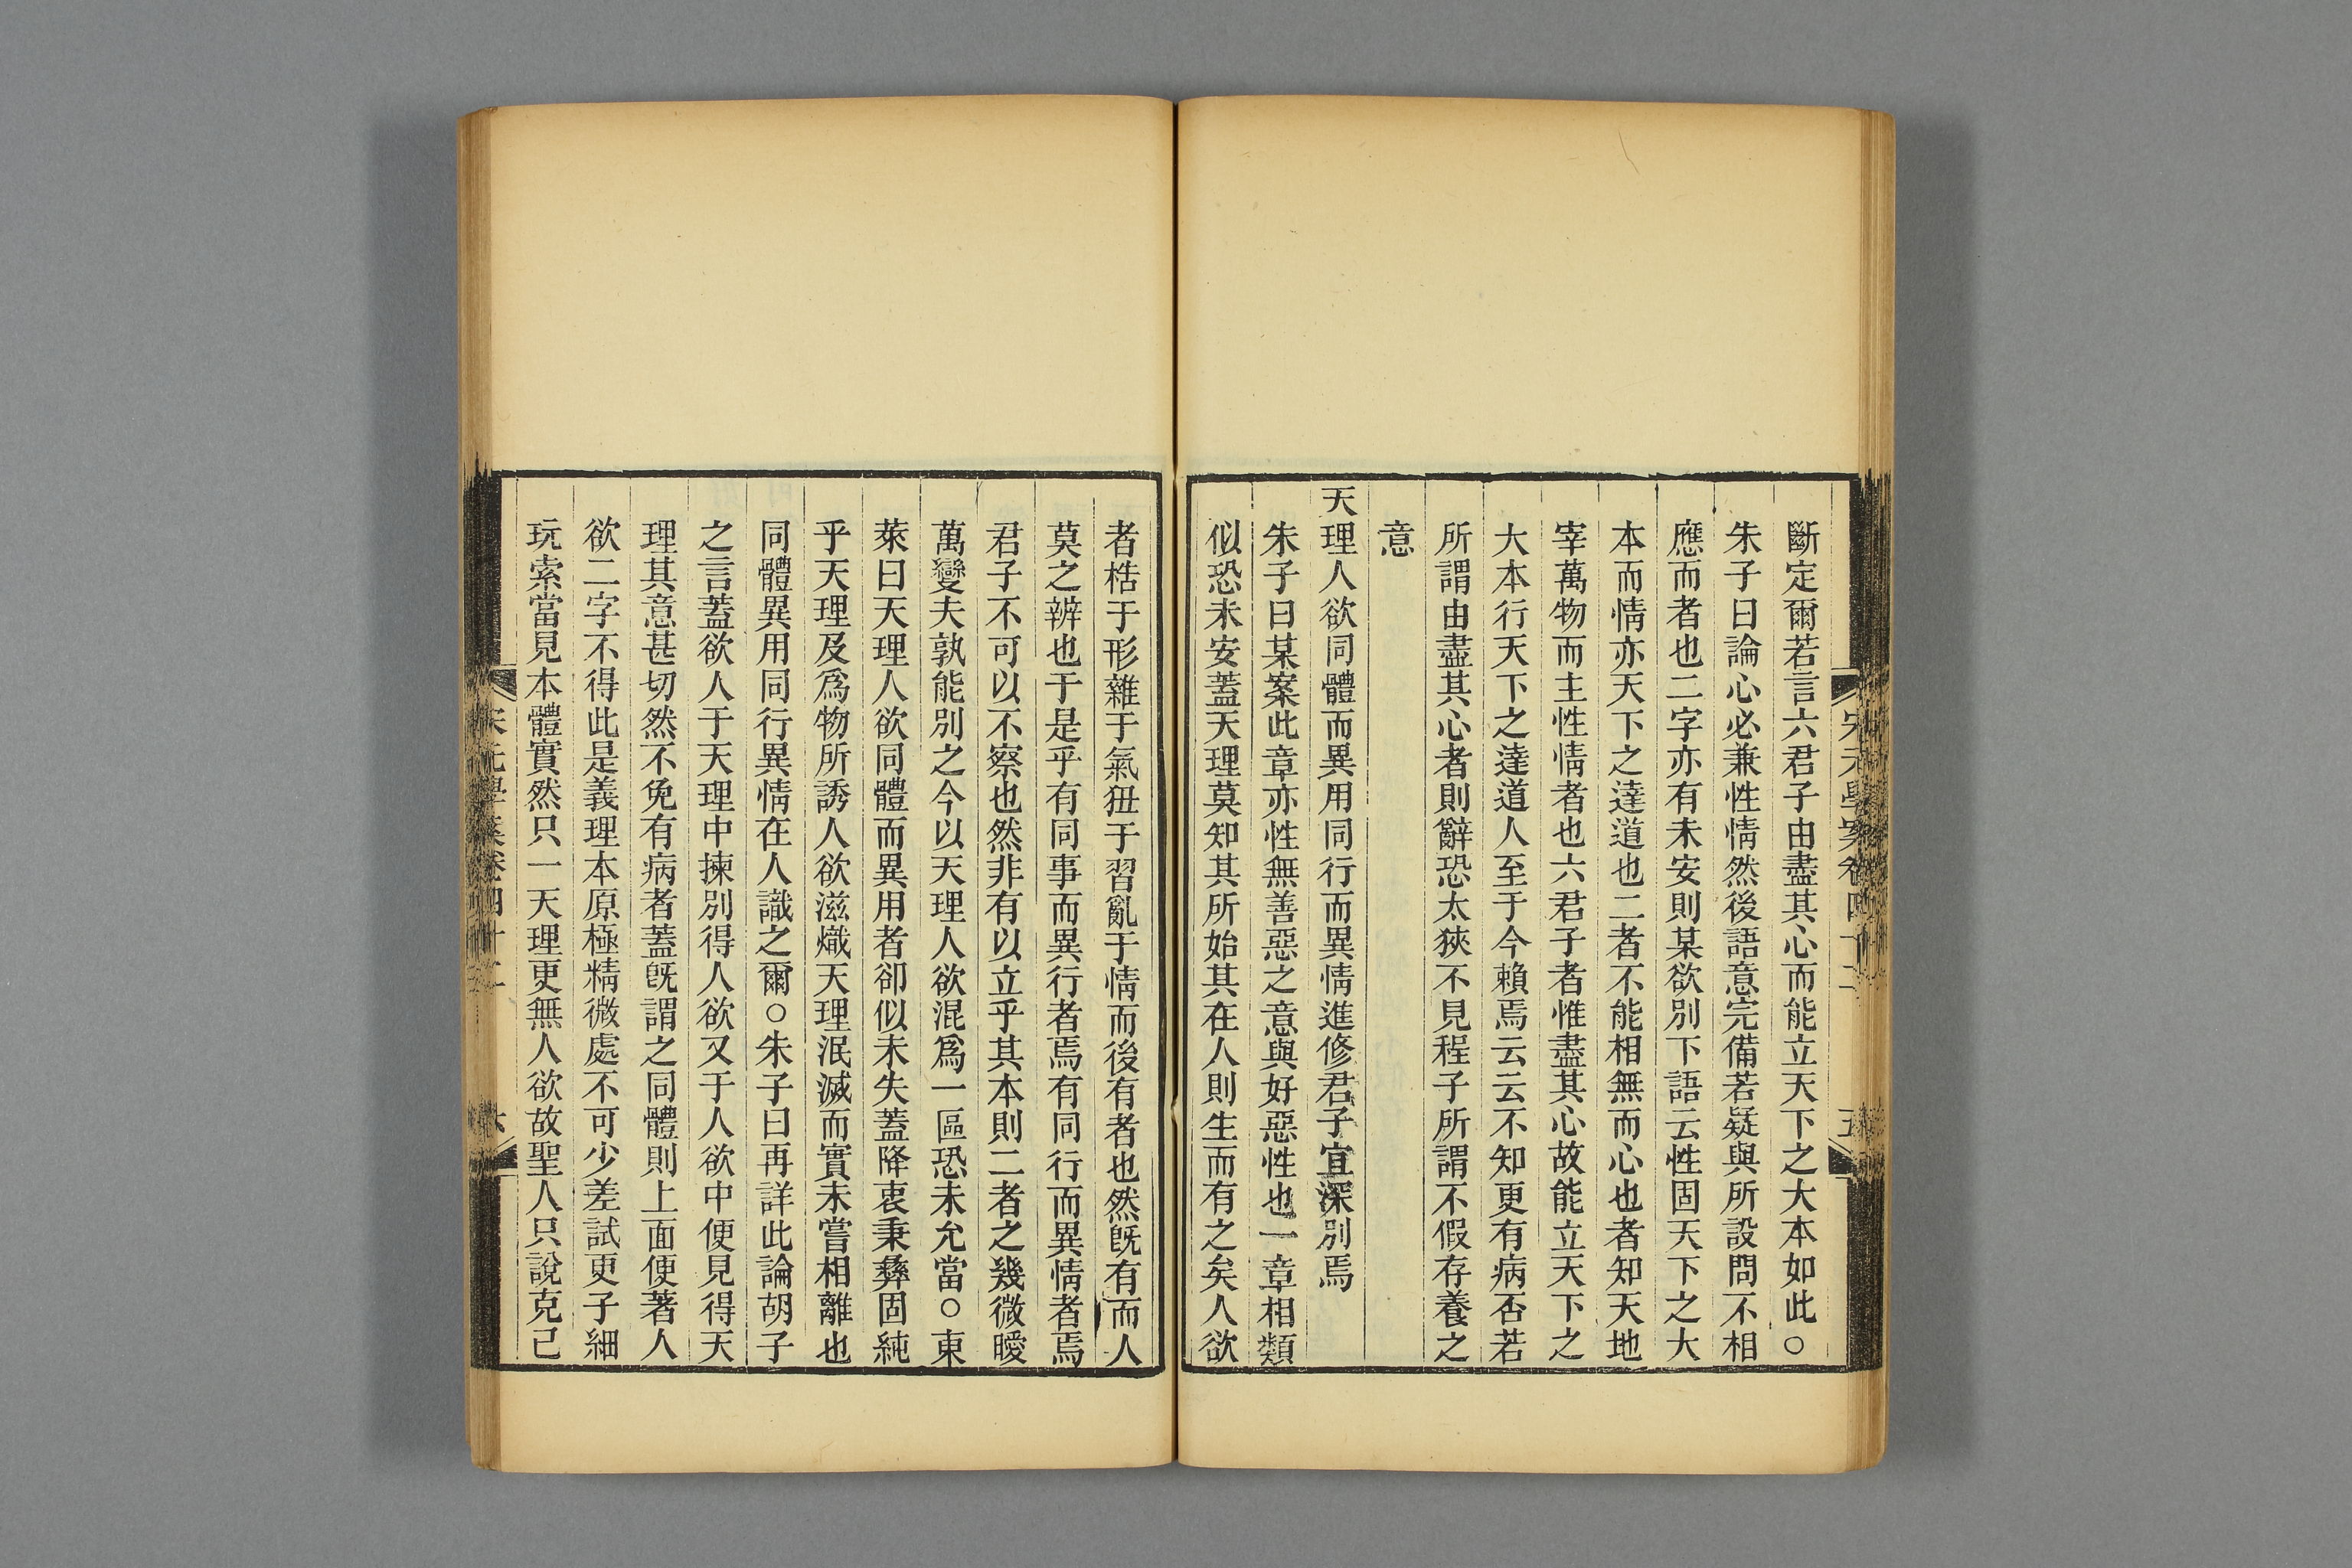 斷定爾若言六君子由盡其心而能立天下之大本如此○
朱子曰論心必兼性情然後語意完備若疑與所設問不相
應而者也二字亦有未安則某欲別下語云性固天下之大
本而情亦天下之達道也二者不能相無而心也者知天地
宰萬物而主性情者也六君子者惟盡其心故能立天下之
大本行天下之達道人至于今賴焉云云不知更有病否若
所謂由盡其心者則辭恐太狹不見程子所謂不假存養之
意
天理人欲同體而異用同行而異情進修君子宜深別焉
朱子曰某案此章亦性無善惡之意與好惡性也一章相類
似恐未安蓋天理莫知其所始其在人則生而有之矣人欲
者梏于形雜于氣狃于習亂于情而後有者也然旣有而人
莫之辨也于是乎有同事而異行者焉有同行而異情者焉
君子不可以不察也然非有以立乎其本則二者之幾微曖
萬變夫孰能別之今以天理人欲混爲一區恐未允當○東
萊曰天理人欲同體而異用者卻似未失蓋降衷秉彝固純
乎天理及爲物所誘人欲滋熾天理泯滅而實未嘗相離也
同體異用同行異情在人識之爾○朱子曰再詳此論胡子
之言蓋欲人于天理中揀別得人欲又于人欲中便見得天
理其意甚切然不免有病者蓋旣謂之同體則上面便著人
欲二字不得此是義理本原極精微處不可少差試更子細
玩索當見本體實然只一天理更無人欲故聖人只說克己
宋元學案卷四十二